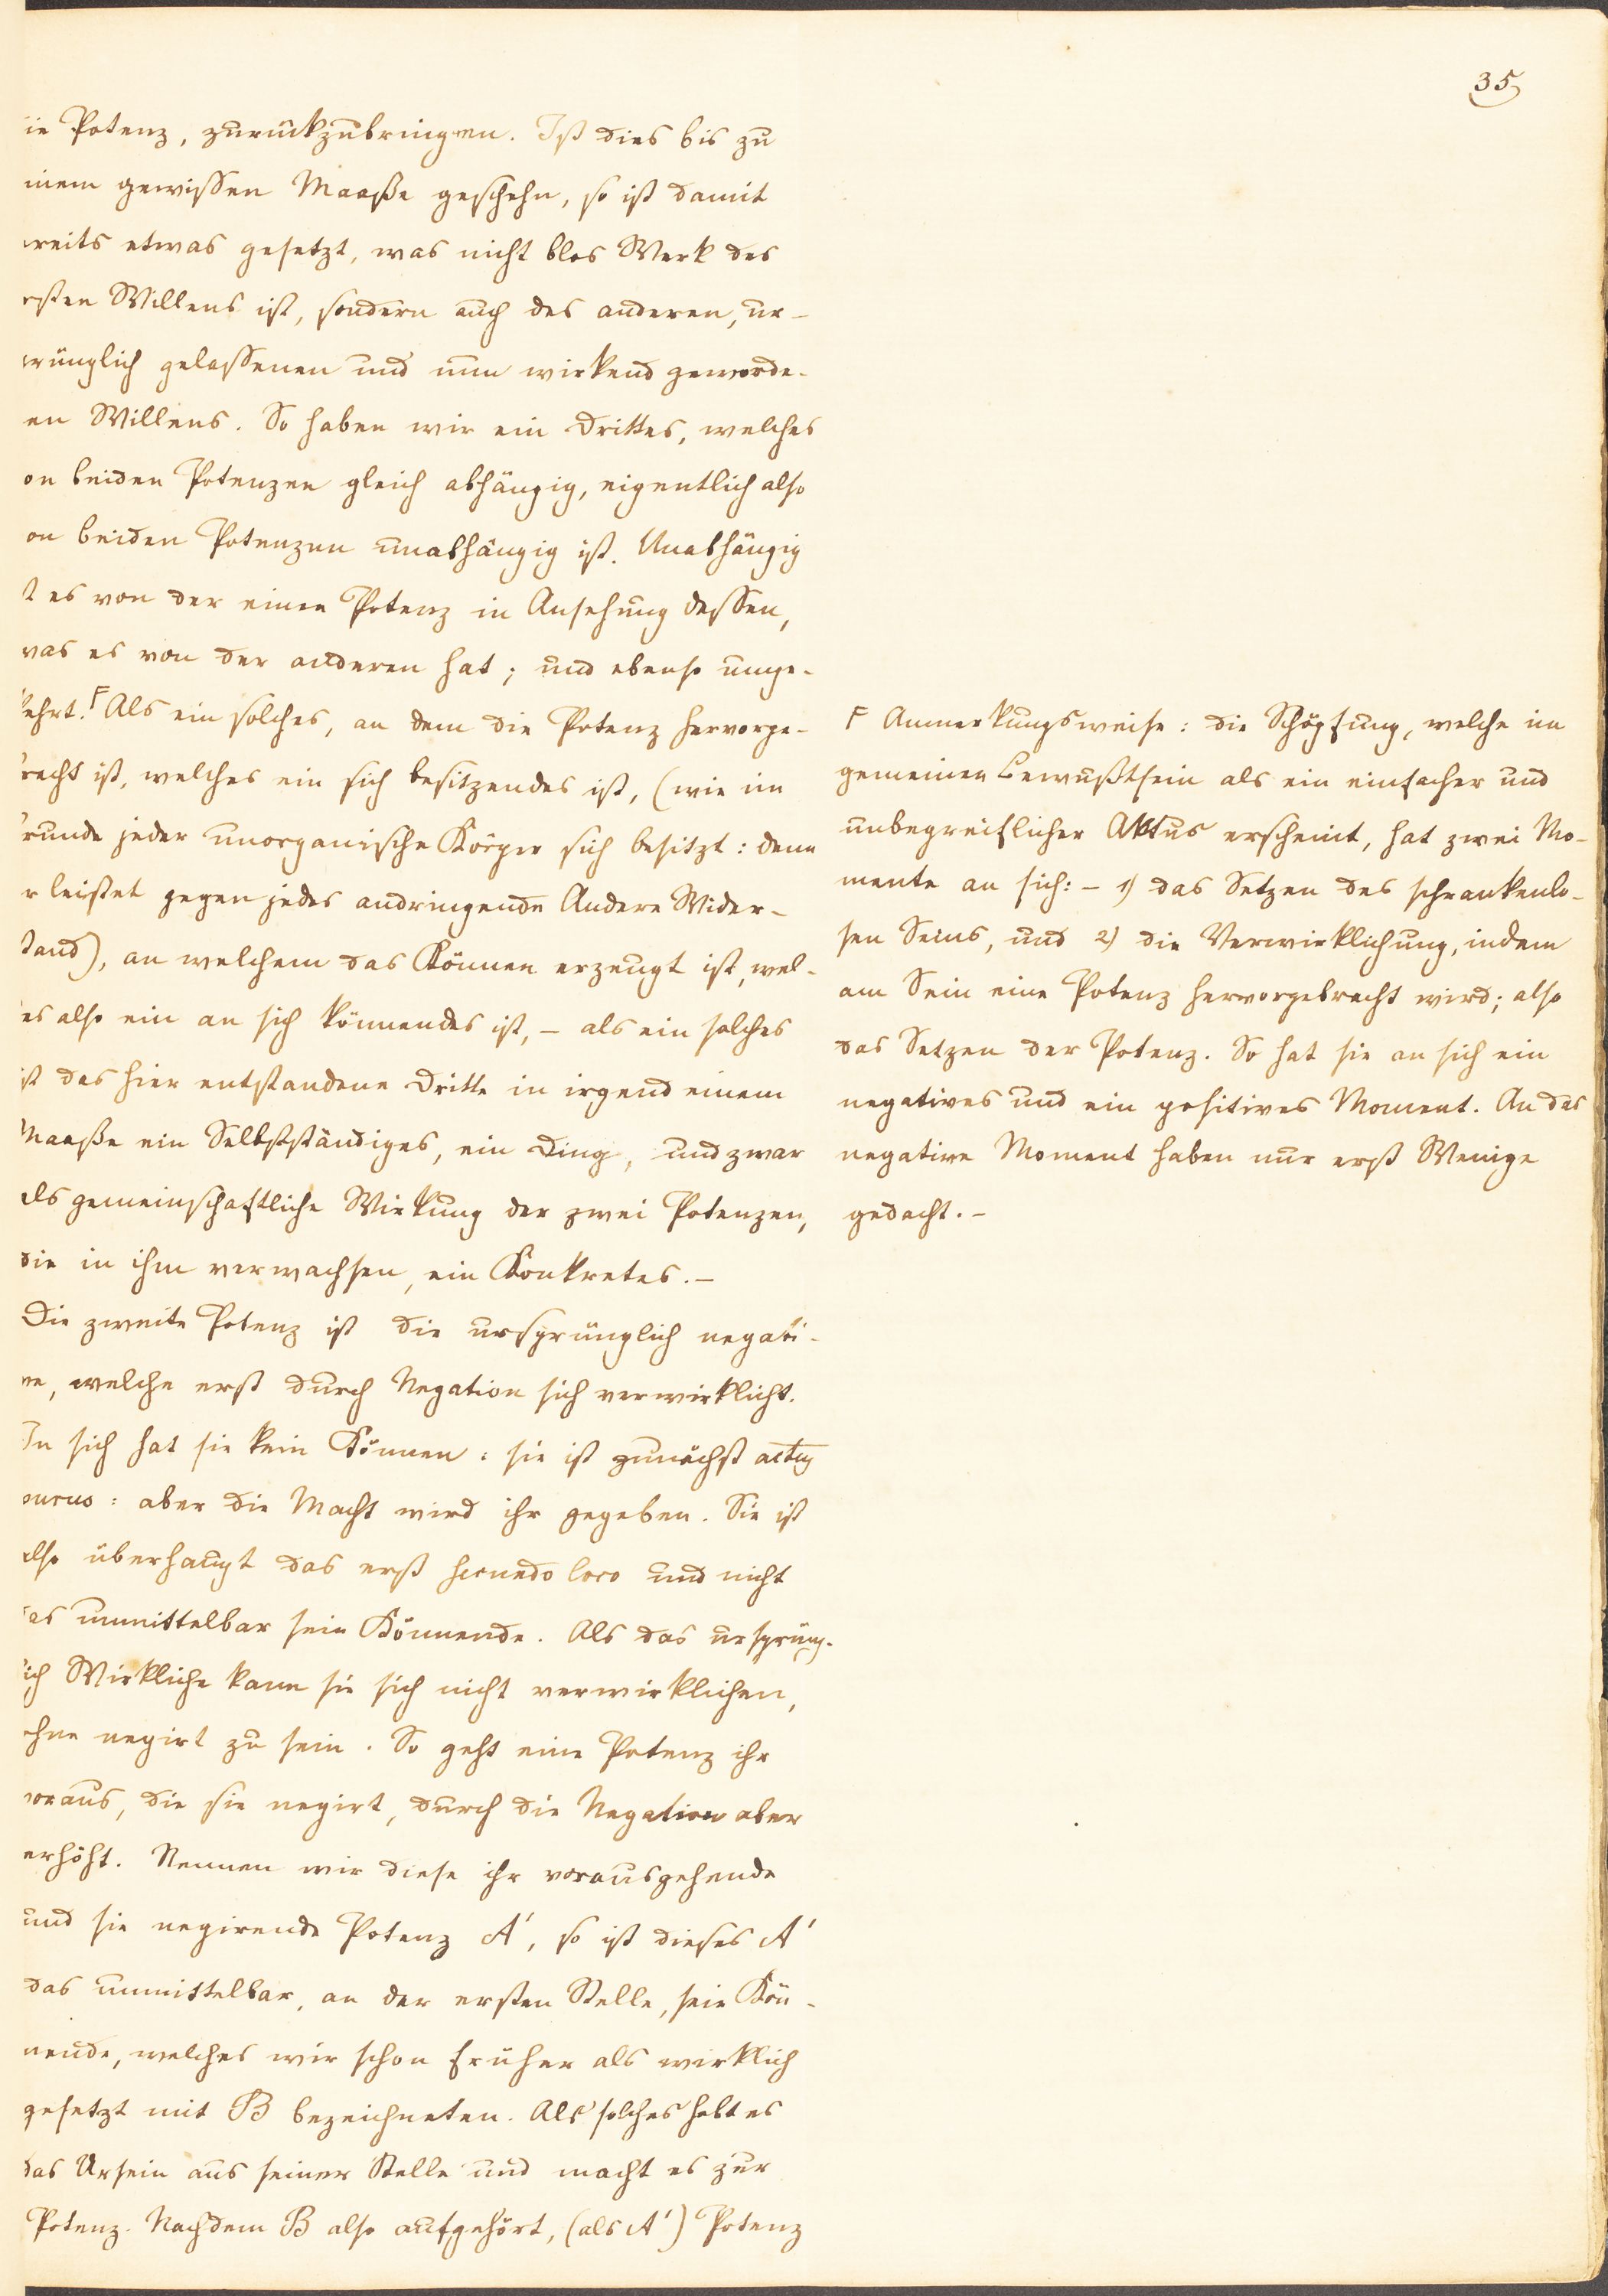 35
ie Potenz, zurückzubringen. Ist dies bis zu
inem gewissen Maaße geschehn, so ist damit
ereits etwas gesetzt, was nicht blos Werk des
rsten Willens ist, sondern auch des anderen, ur-
rünglich gelassenen und nun wirkend geworde-
en Willens. So haben wir ein Drittes, welches
on beiden Potenzen gleich abhängig, eigentlich also
on beiden Potenzen unabhängig ist. Unabhängig
t es von der einen Potenz in Ansehung dessen,
was es von der anderen hat; und ebenso umge-
kehrt. F Als ein solches, an dem die Potenz hervorge-
racht ist, welches ein sich besitzendes ist, (wie im
runde jeder unorganische Körper sich besitzt: denn
r leistet gegen jedes andringende Andere Wider-
tand), an welchem das Können erzeugt ist, wel-
es also ein an sich könnendes ist, – als ein solches
ist das hier entstandene Dritte in irgend einem
Maaße ein Selbstständiges, ein Ding, und zwar
als gemeinschaftliche Wirkung der zwei Potenzen,
die in ihm verwachsen, ein Konkretes. –
Die zweite Potenz ist die ursprünglich negati-
ve, welche erst durch Negation sich verwirklicht.
In sich hat sie kein Können: sie ist zunächst actus
purus: aber die Macht wird ihr gegeben. Sie ist
also überhaupt das erst secundo loco und nicht
as unmittelbar sein Könnende. Als das ursprüng-
ich Wirkliche kann sie sich nicht verwirklichen,
ohne negirt zu sein. So geht eine Potenz ihr
voraus, die sie negirt, durch die Negation aber
erhöht. Nennen wir diese ihr vorausgehende
und sie negirende Potenz A', so ist dieses A'
das unmittelbar, an der ersten Stelle, sein Kön-
nende, welches wir schon früher als wirklich
gesetzt mit B bezeichneten. Als solches hebt es
das Ursein aus seiner Stelle und macht es zur
Potenz. Nachdem B also aufgehört, (als A') Potenz
F Anmerkungsweise: die Schöpfung, welche im
gemeinen Bewußtsein als ein einfacher und
unbegreiflicher Aktus erscheint, hat zwei Mo-
mente an sich: – 1) das Setzen des schrankenlo-
sen Seins, und 2) die Verwirklichung, indem
am Sein eine Potenz hervorgebracht wird; also
das Setzen der Potenz. So hat sie an sich ein
negatives und ein positives Moment. An das
negative Moment haben nur erst Wenige
gedacht. –